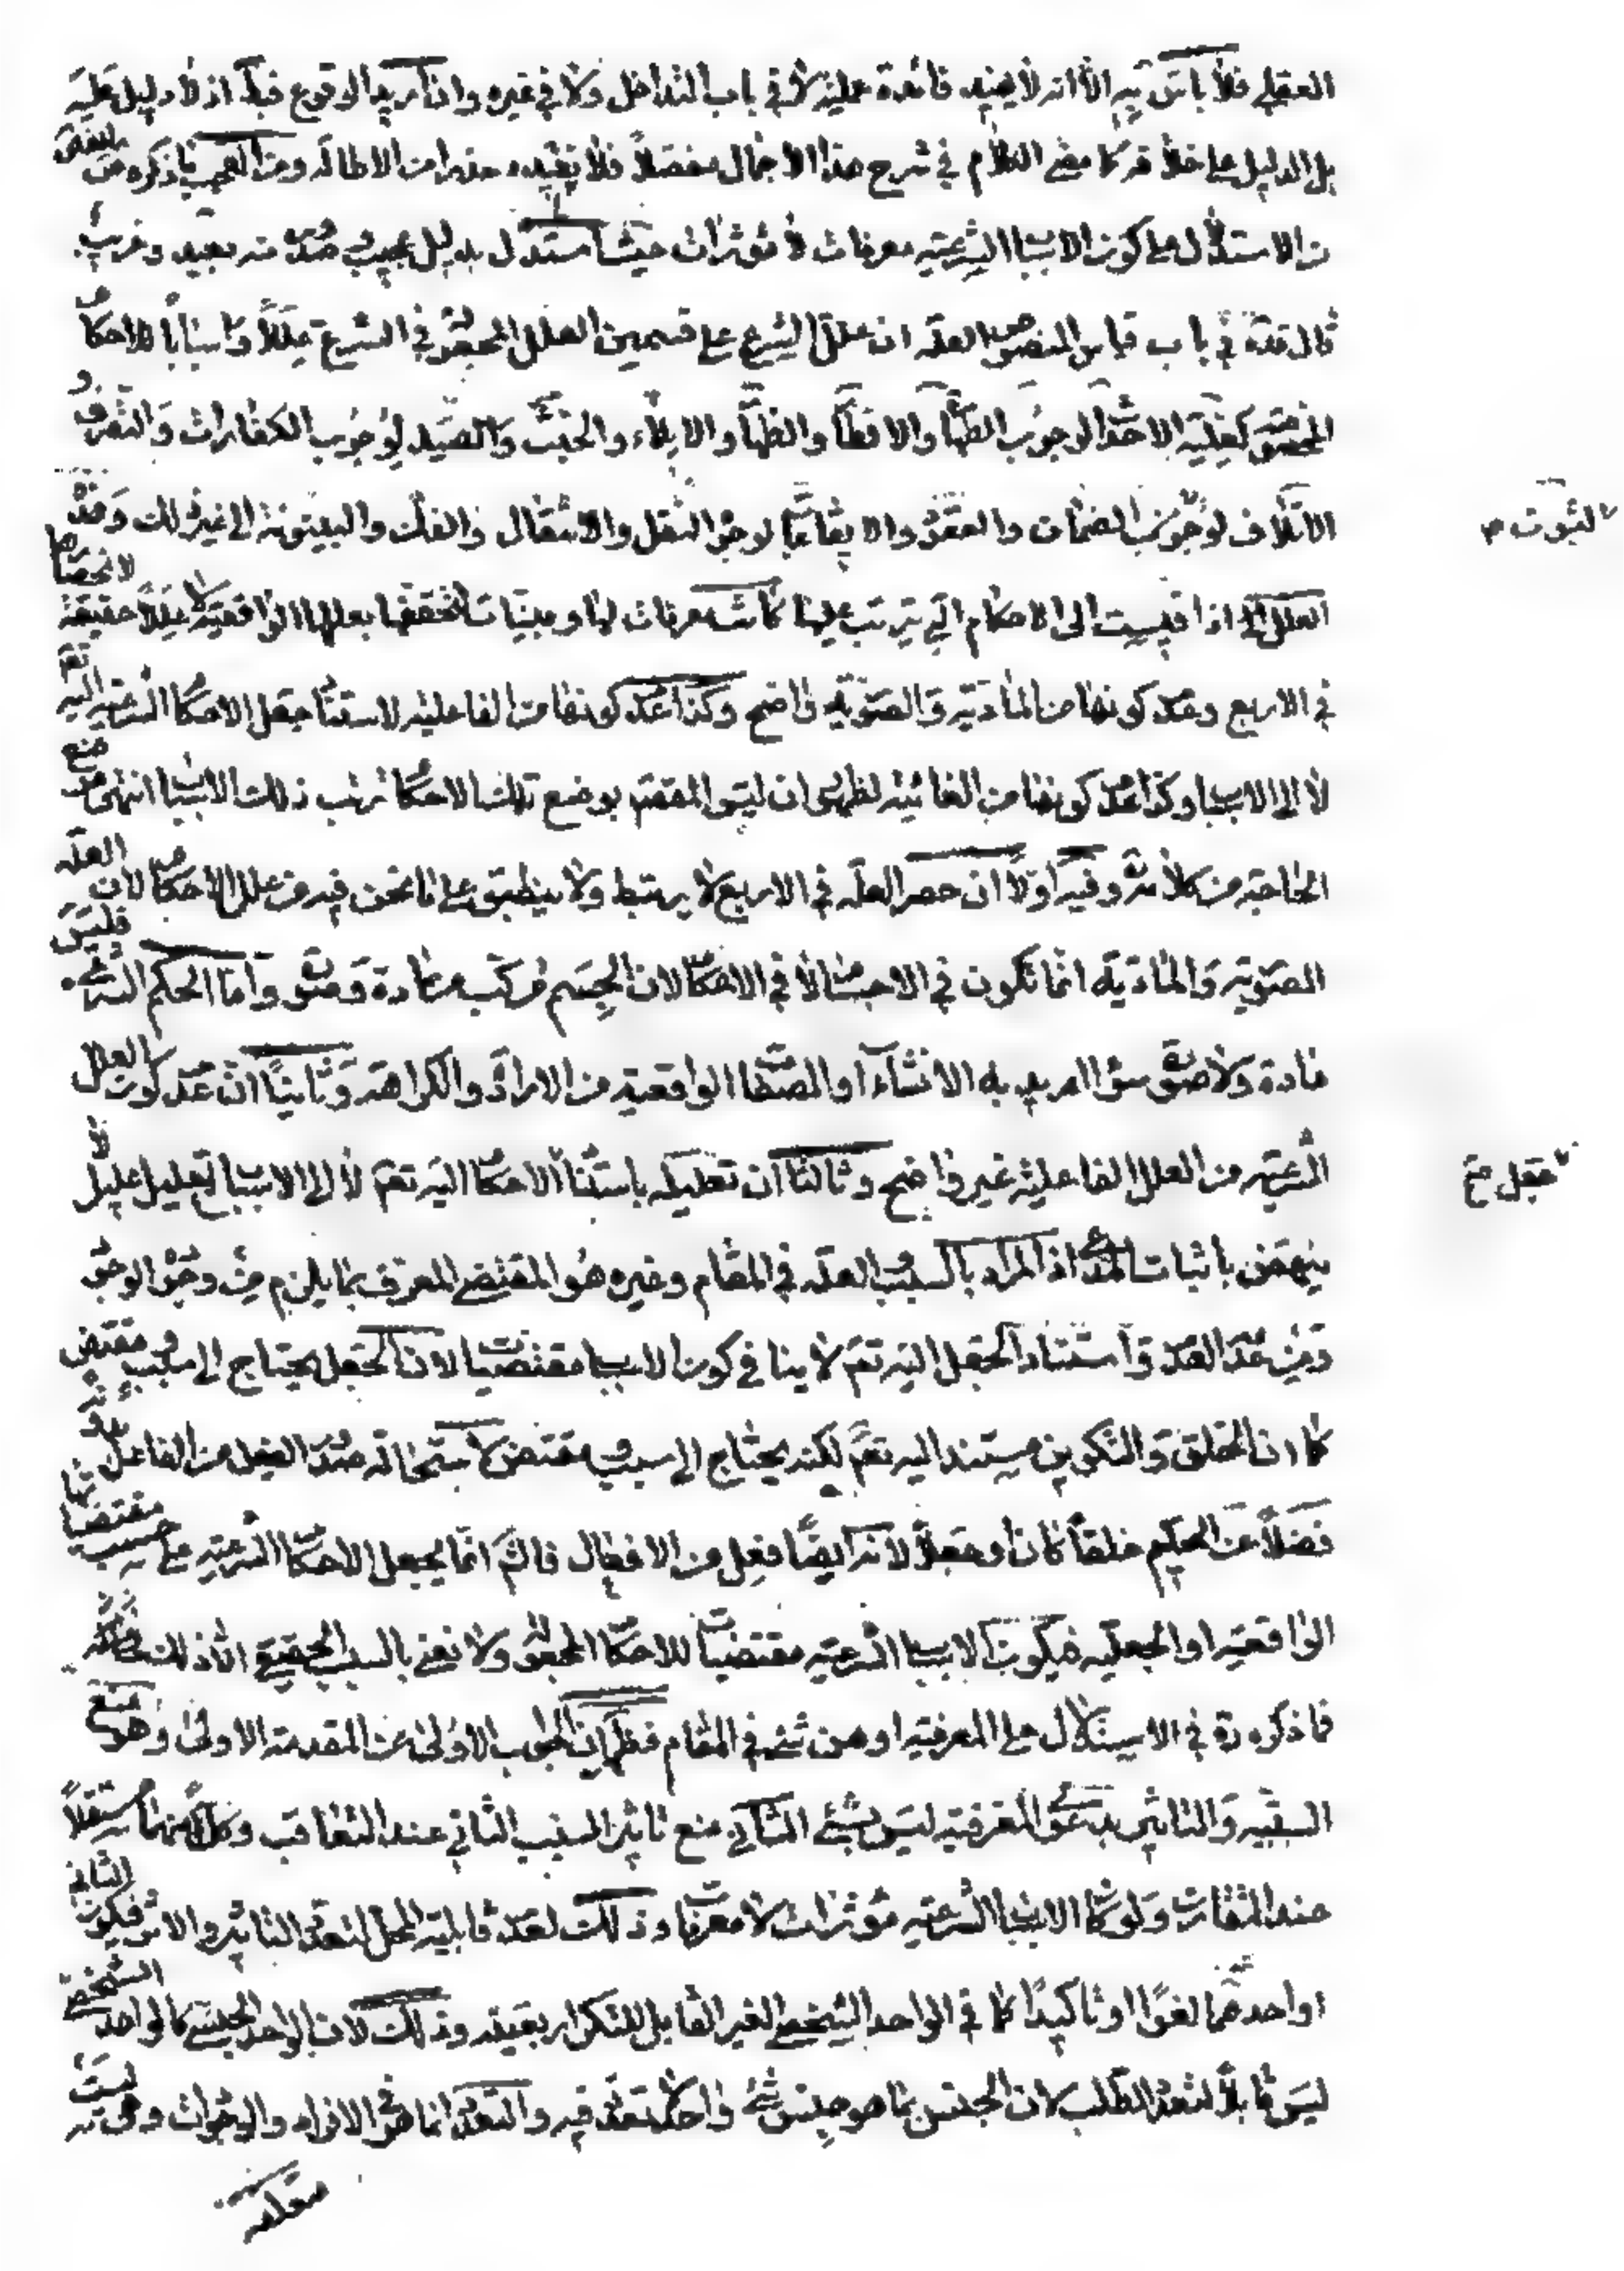 العقلي فلا باس به الا انه لا يفيد فائدة عملية لا في باب التداخل ولا في غيره وان اريد الوقوع فيه اذ لا دليل عليه
بل الدليل على خلافه كما مضى الكلام في شرح هذا الاجمال مفصلا فلا نفيده حذرا من الاطالة ومن العجب ما ذكره بعض
من الاستدلال على كون الاسباب الشرعية معرفات لا مؤثرات حيث استدل بدليل عجيب صدوره منه بعيد وغريب
قال قده في باب قياس المنصوص العلة ان علل الشرع على قسمين العلل المجعولة في الشرع عللا واسبابا للاحكام
المخصوصة كعلية الاحداث لوجوب الطهارة والافطار والظهار والايلاء والحنث والصيد لوجوب الكفارات والتصرف و
الاتلاف لوجوب الضمان والعقود والايقاعات لوجوب النقل والانتقال والفك والبينونة الى غير ذلك وهذه
العلل اذا قيست الى الاحكام التي يترتب عليها كانت معرفات لها ومبينات لتحققها بعللها الواقعية لا عللا حقيقة لانحصارها
في الاربع وعدم كونها من المادية والصورية واضح وكذا عدم كونها من الفاعلية لاستناد جعل الاحكام الشرعية اليه تعم
لا الى الاسباب وكذا عدم كونها من الغائية لظهور ان ليس المقصود بوضع تلك الاحكام ترتب ذلك الاسباب انتهى موضع
الحاجة من كلامه وفيه اولا ان حصر العلة في الاربع لا يرتبط ولا ينطبق على ما نحن فيه من علل الاحكام لان العلة
الصورية والمادية انما تكون في الاجسام لا في الاحكام لان الجسم مركب من مادة وصورة واما الحكم الشرعي فليس
مادة ولا صورة سواء اريد به الانشاء او الصفات الواقعية من الارادة والكراهة وثانيا ان عدم كون العلل
الشرعية من العلل الفاعلية غير واضح وثالثا ان تعليله باستناد الاحكام اليه تعم لا الى الاسباب تعليل عليل لا
ينهض باثبات المدعى اذ المراد بالسبب والعلة في المقام وغيره هو المقتضي المعرف بما يلزم من وجوده الوجود
ومن عدمه العدم واستناد الجعل اليه تعم لا ينافي كون الاسباب مقتضيات لان الجعل يحتاج الى سبب ومقتض
كما ان الخلق والتكوين مستند اليه تعم لكنه يحتاج الى سبب ومقتض لاستحالة صدور الفعل من الفاعل بلا مؤثر
فضلا عن الحكيم خلقا كان او جعلا لانه ايضا فعل من الافعال فالشارع انما يجعل الاحكام الشرعية على حسب مقتضياتها
الواقعية او الجعلية فيكون الاسباب الشرعية مقتضيات للاحكام المجعولة ولا نعني بالسبب الحقيقي الا ذلك
فما ذكره ره في الاستدلال على المعرفية اوهن شيء في المقام فظهر ان الجواب الاول عن المقدمة الاولى وهو منع
السببية والتاثير بدعوى المعرفية ليس بشيء الثاني منع تاثير السبب الثاني عند التعاقب وكل منهما مستقلا
عند التقارن ولو كان الاسباب الشرعية مؤثرات لا معرفات وذلك لعدم قابلية المحل لتعدد التاثير والاثر فيكون الثاني
او احدهما لغوا او تاكيدا كما في الواحد الشخصي الغير القابل للتكرار بعينه وذلك لان الواحد الجنسي كالواحد الشخصي
ليس قابلا لتعدد الطلب لان الجنس بما هو جنس شيء واحد لا تعدد فيه والتعدد انما هو في الافراد والوجودات وهي ليست
متعلقة
لثبوت م
جعل خ